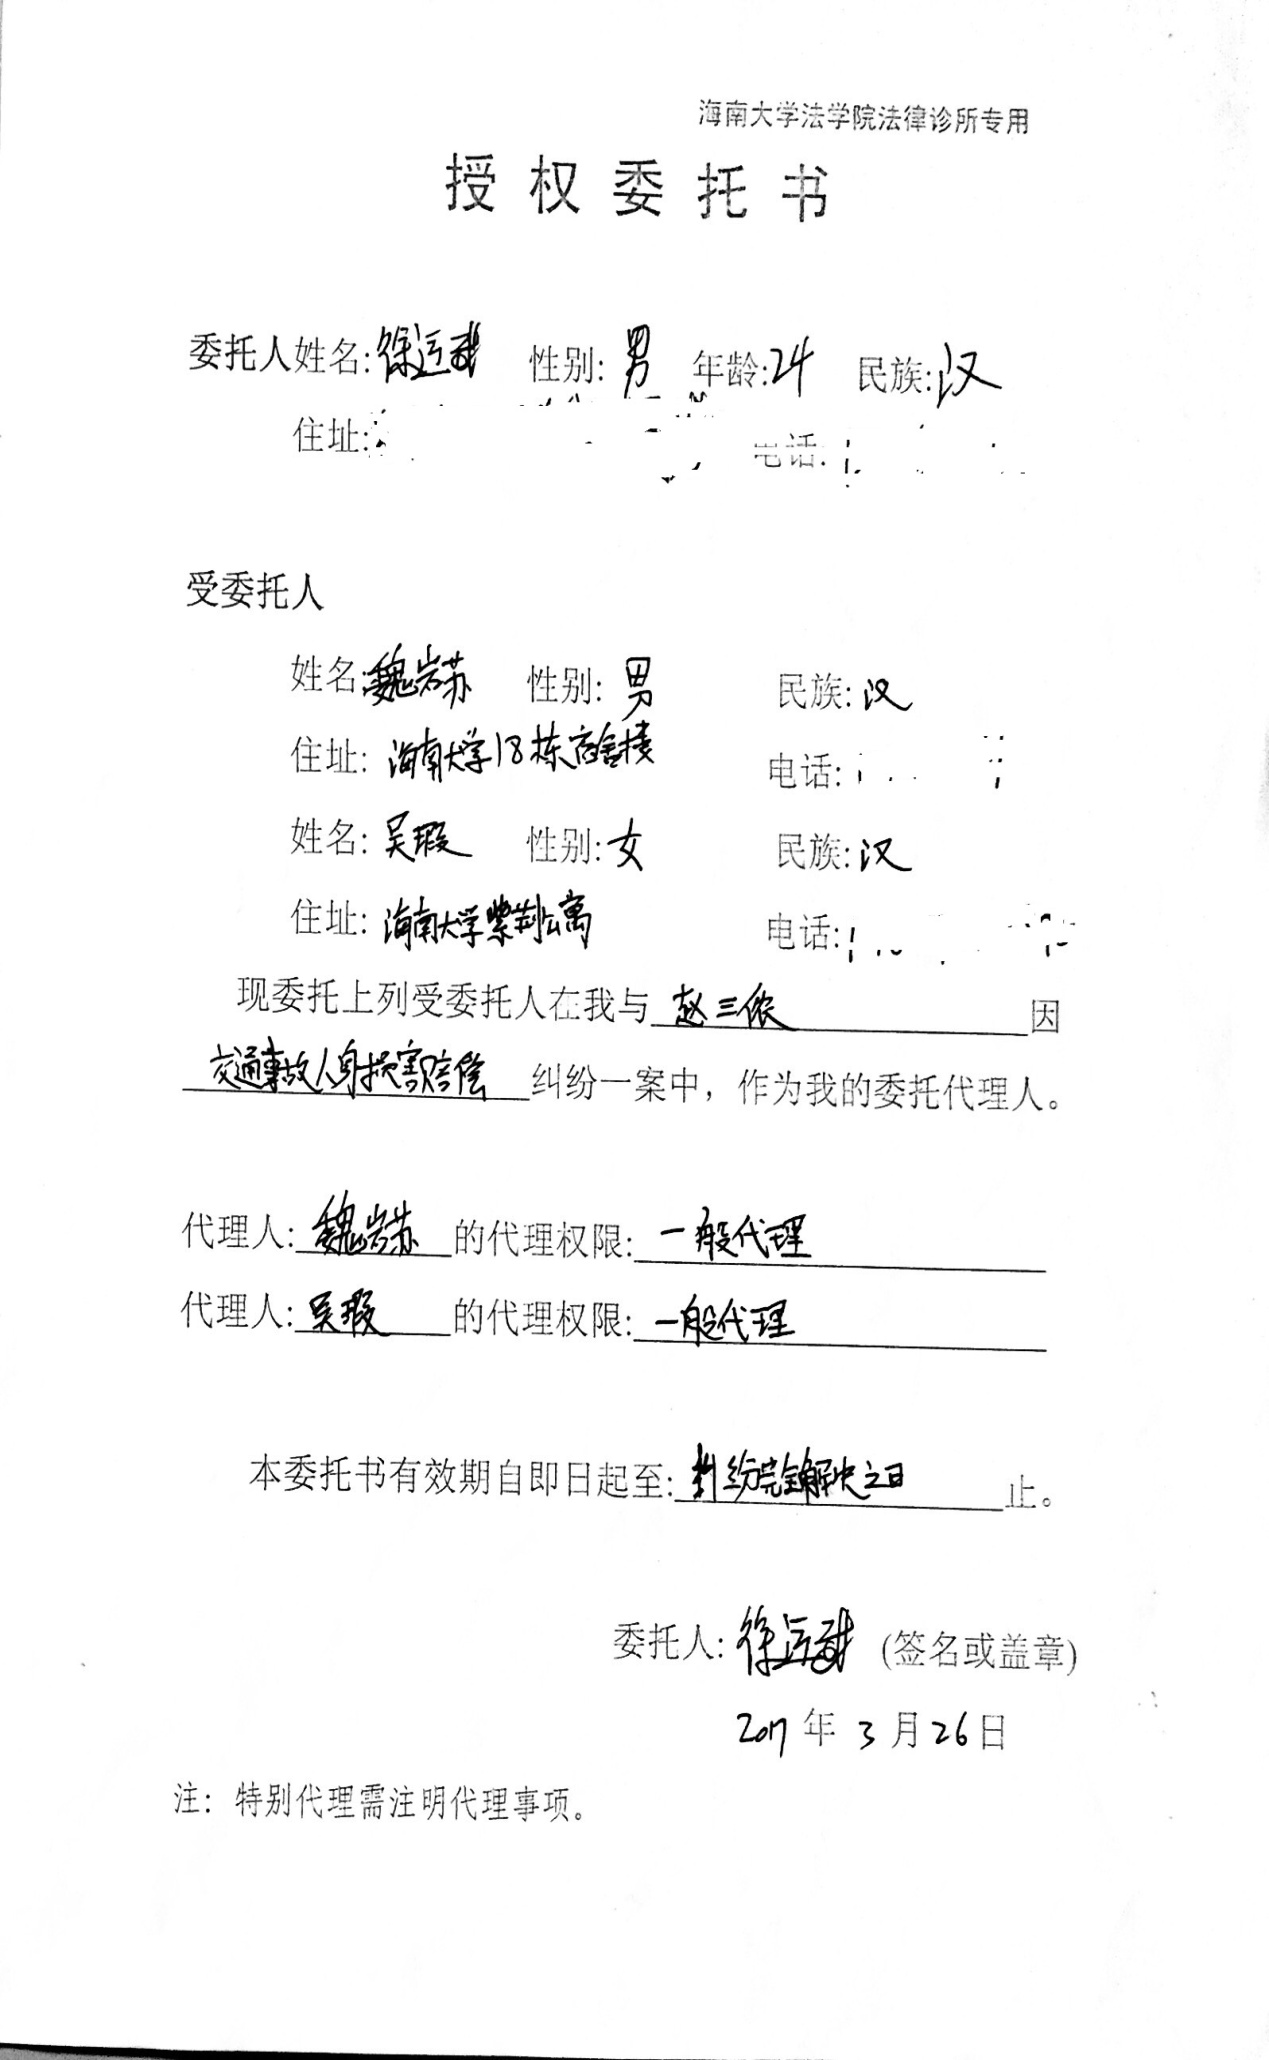 海南大学法学院法律诊所专用
授权委托书
委托人姓名:徐运斌 性别:男 年龄:24 民族:汉
住址: 电话:
受委托人
姓名:魏岩苏 性别:男 民族:汉
住址:海南大学18栋宿舍楼 电话:
姓名:吴瑕 性别:女 民族:汉
住址:海南大学紫荆公寓 电话:
现委托上列受委托人在我与赵三侬因
交通事故人身损害赔偿纠纷一案中，作为我的委托代理人。
代理人:魏岩苏的代理权限:一般代理
代理人:吴瑕的代理权限:一般代理
本委托书有效期自即日起至:纠纷完全解决之日止。
委托人:徐运斌(签名或盖章)
2017年3月26日
注：特别代理需注明代理事项。